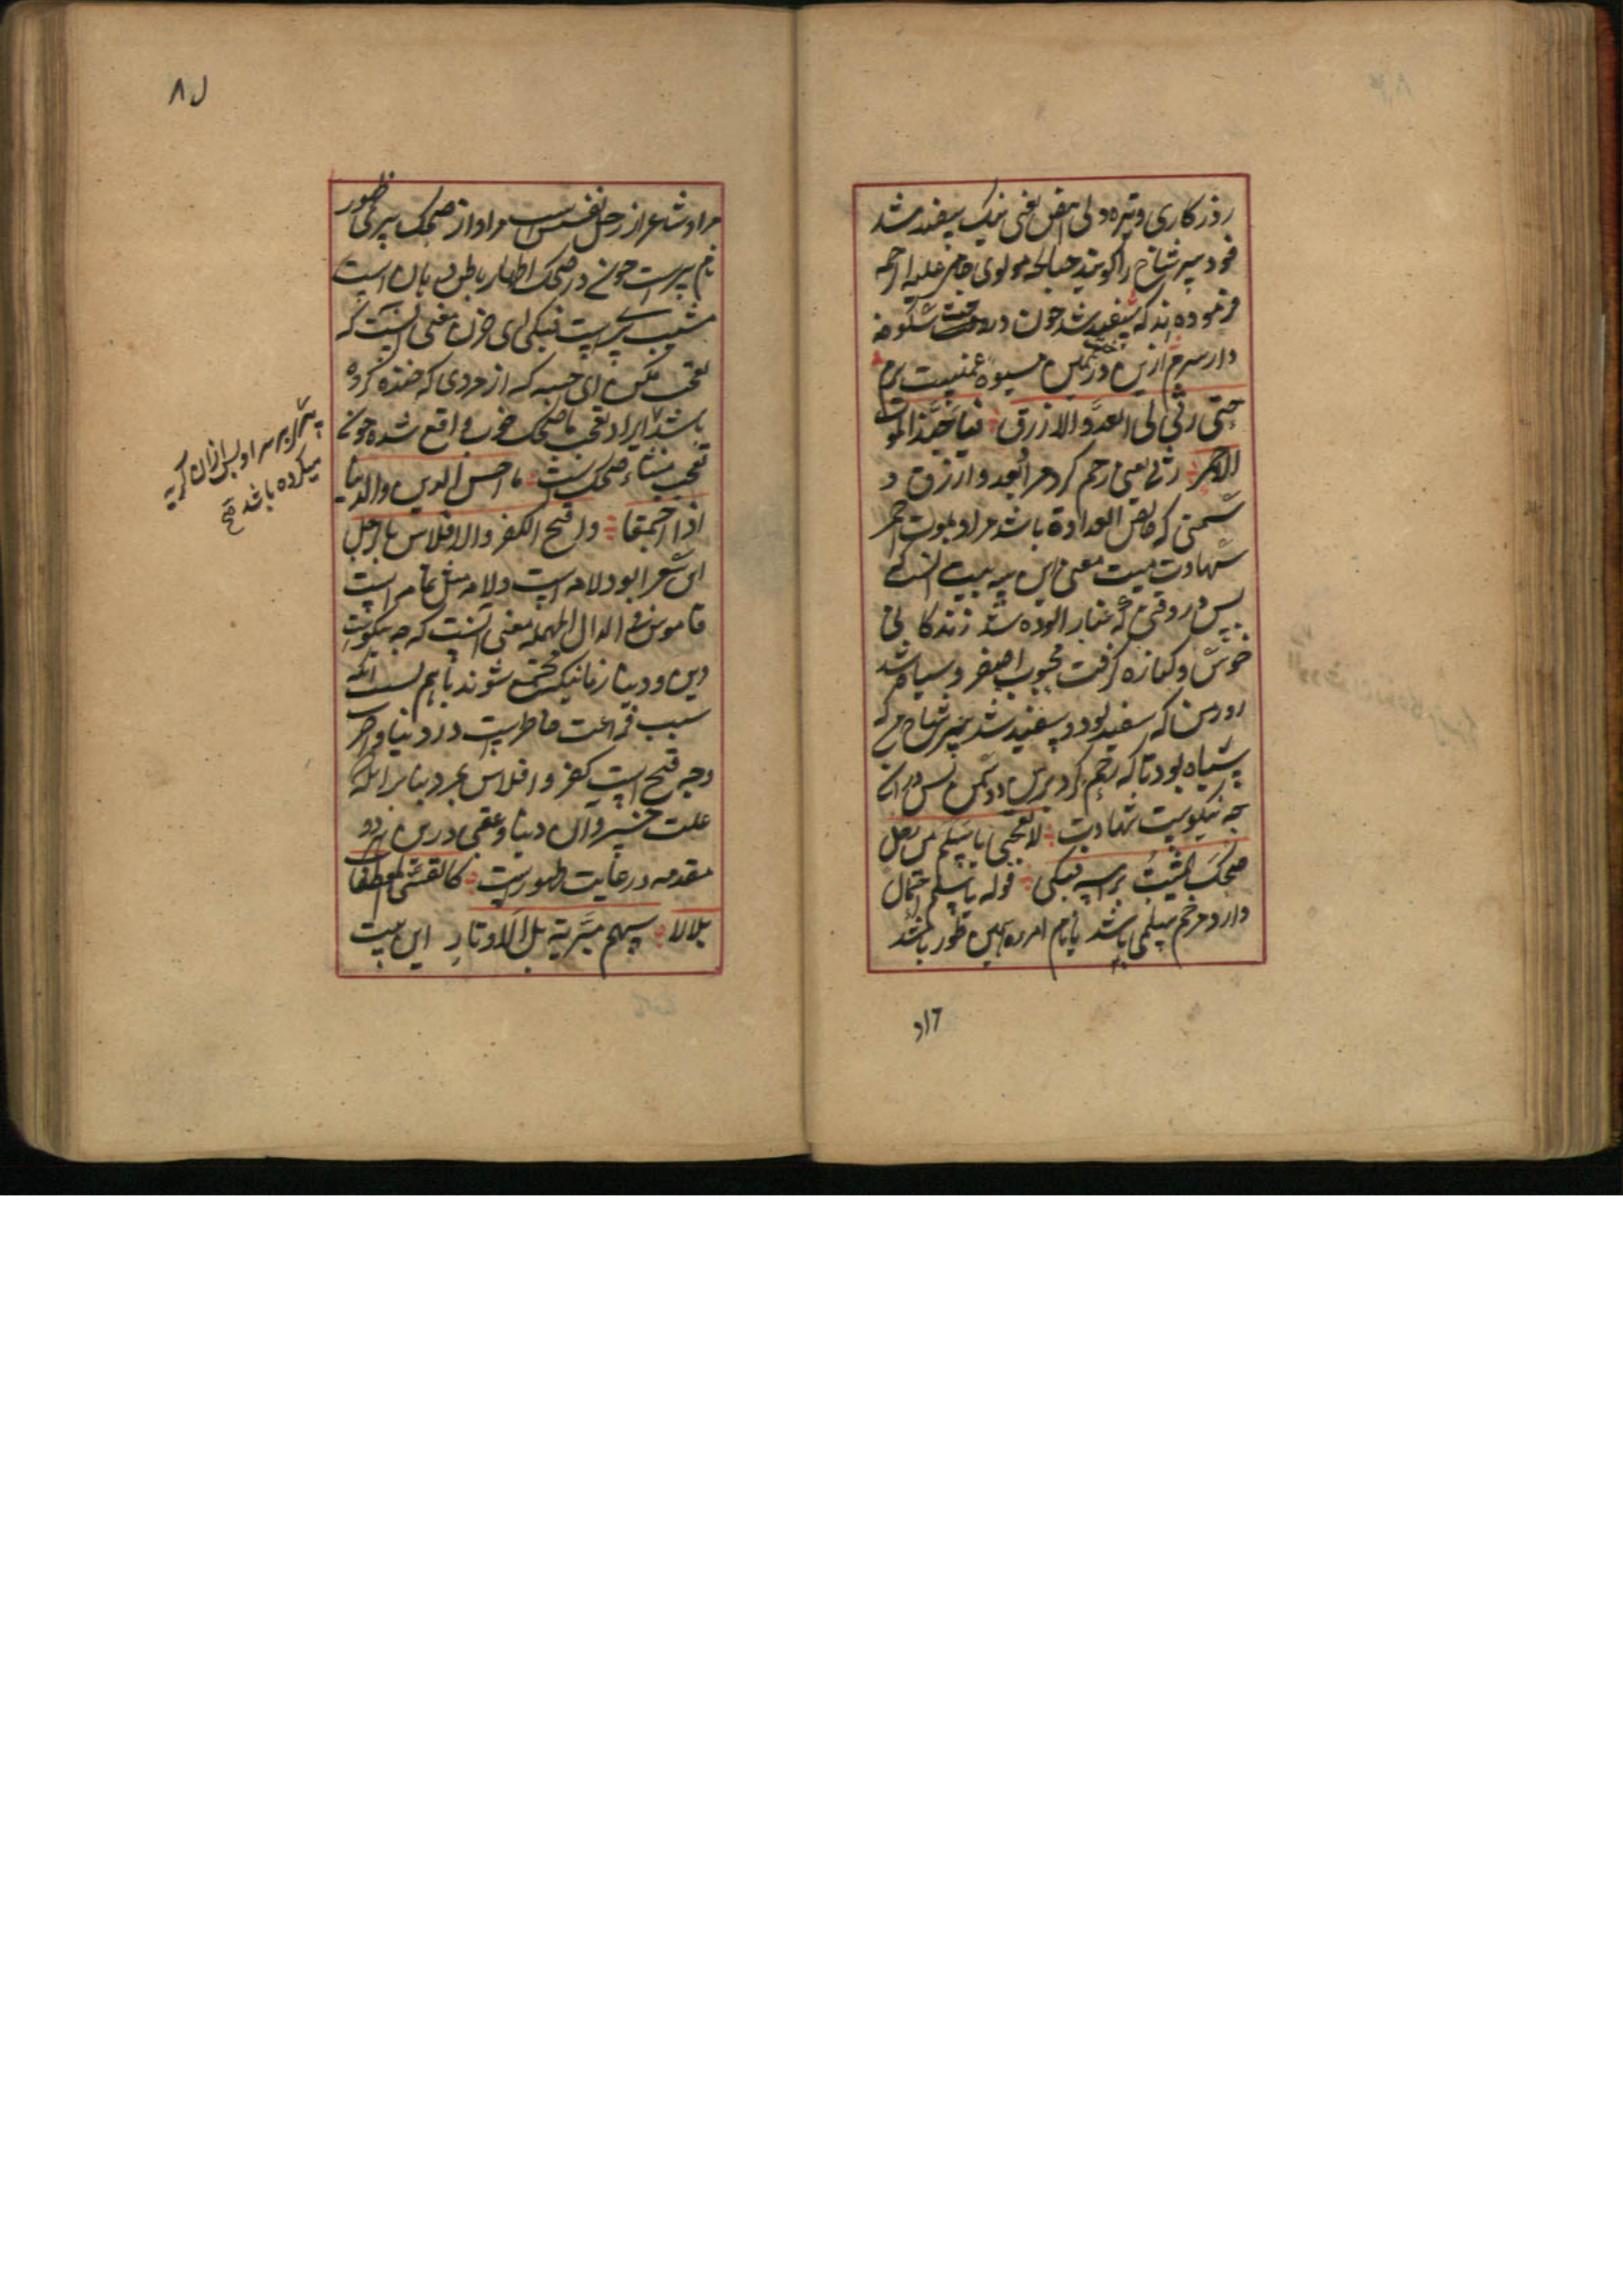 روزکاری و تیره دلی ابیض یعنی نیک سفید شد
فود سپر شاخ را کویند چنانچه مولوی جامی علیه الرحمه
فرموده اند که سفید شد چون درخت شکوفه
دار سرم ازین درخت همین میوه غمیست برم
حتی رثی لی العدو الازرق فیا حبذا الموت
الاحمر رثی یعنی رحم کرد مرا بعدو ازرق
دشمنی که خالص العداوة باشد مراد بموت احمر
شهادت است معنی این
پس در وقتی که غبار آلوده شد زندکانی
خوش و کناره کرفت محبوب اصفر و سیاه شد
روز من که سفید بود و سفید شد سر شاخ من که
سیاه بود تا که رحم کرد برمن دشمن پس درانی
چه نیکوست شهادت لا تعجبی یا سلم من رجل
ضحک المشیب براسه فبکی قوله یا سلم احتمال
دارد مرخم سلمی باشد یا نام امرءه همین طور باشد
مراد
ل۸
مراد شاعر از رجل نفس است مراد از ضحک سپر ظهور
نام پیریست چونکه در ضحک اظهار باطن دهان است
مشیب پیریست فبکی ای حزن معنی اینست که
تعجب مکن ای حبیبه که از مردی که خنده کرده
باشد ایراد تعجب با ضحک خوب واقع شده چونکه
تعجب منشاء ضحک است ما احسن الدین والدنیا
اذا اجتمعا واقبح الکفر والافلاس بالرجل
این شعر ابودلامه است دلامه مثل ثمامه است
قاموس فی الدال المهمله معنی اینست که چه نیکوست
دین و دنیا زمانیکه مجتمع شوند باهم بسبب آنکه
سبب فراغت خاطر است در دنیا و آخرت
وچه قبیح است کفر و افلاس بمرد بنابر آنکه
علت خسران دنیا و عقبی درین هر دو
مقدمه در غایت ظهور است کالقسی المعطفات
بل الاسهم مبریة بل الاوتار این بیت
پیری بر سر او پس ازان کریه
میکرده باشد صح